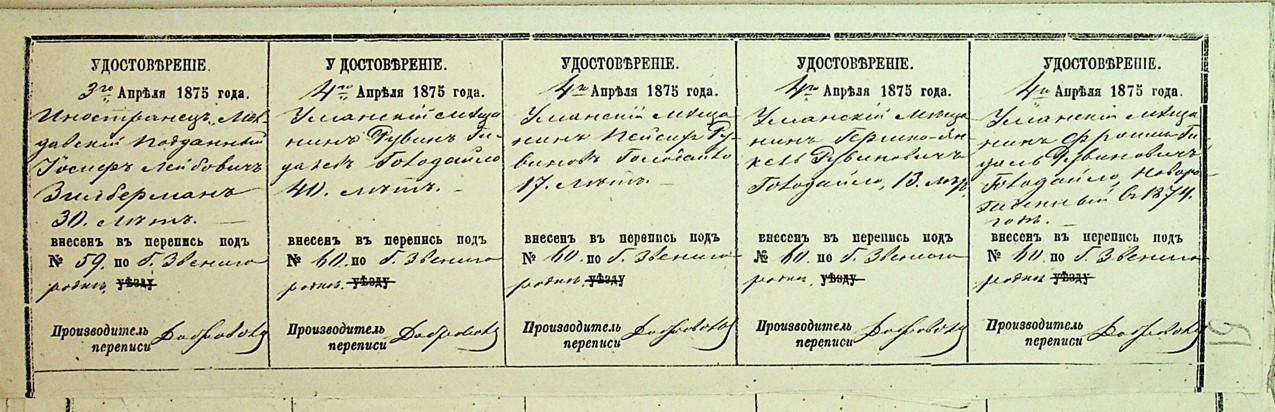 УДОСТОВѢРЕНІЕ.
3го Апрѣля 1875 года.
Иностранецъ, Мол-
давскій подданный
Іосифъ Лейбовичъ
Зильберманъ
30. лѣтъ.
внесенъ въ перепись подъ
№ 59. по г. Звениго
родкѣ, уѣзду
Производитель
переписи
УДОСТОВѢРЕНІЕ.
4го Апрѣля 1875 года.
Уманскій мѣща
нинъ Рувинъ
Голодайло
40. лѣтъ.
внесенъ въ перепись подъ
№ 60. по г. Звениго
родкѣ. уѣзду
Производитель
переписи
УДОСТОВѢРЕНІЕ.
4го Апрѣля 1875 года.
Уманскій мѣща
нинъ Ру
виновъ Голодайло
17. лѣтъ.
внесенъ въ перепись подъ
№ 60. по г. Звениго
родкѣ. уѣзду
Производитель
переписи
УДОСТОВѢРЕНІЕ.
4го Апрѣля 1875 года.
Уманскій мѣща
нинъ Гершко-Ян
кель Рувиновичъ
Голодайло, 13. лѣтъ
внесенъ въ перепись подъ
№ 60. по г. Звениго
родкѣ, уѣзду
Производитель
переписи
УДОСТОВѢРЕНІЕ.
4го Апрѣля 1875 года.
Уманскій мѣща
нинъ Фроимъ-Ги
даль Рувиновичъ
Голодайло, новоро
жденный въ 1874.
годѣ.
внесенъ въ перепись подъ
№ 60. по г. Звениго
родкѣ. уѣзду
Производитель
переписи